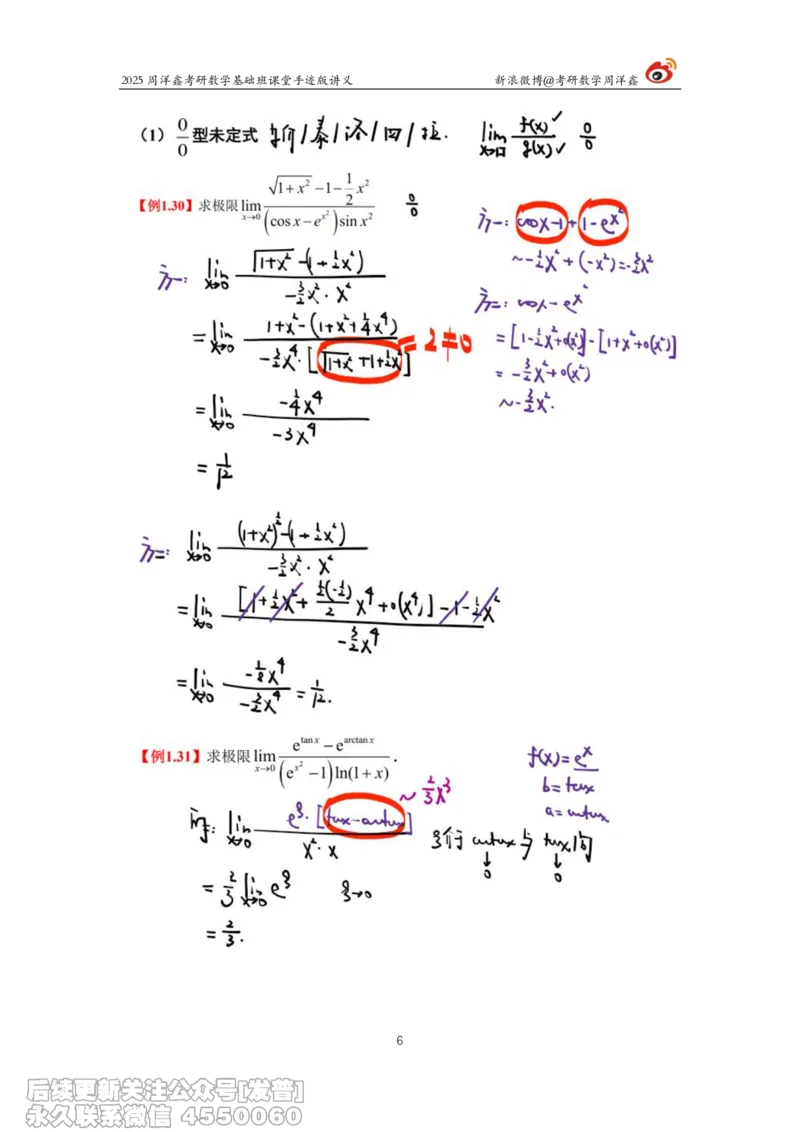 2025 周洋鑫考研数学基础班课堂手迹版讲义 新浪微博@考研数学周洋鑫
(1) 0/0 型未定式 等价/泰/洛/四/拉. lim_{x→□} f(x)✓/g(x)✓ 0/0
【例1.30】求极限 lim_{x→0} (√(1+x²) −1− ½x²)/((cos x − e^{x²}) sin x²) 0/0
方一: cosx−1 + 1−e^{x²}
~ −½x² + (−x²) = −3/2x²
方二: cosx − e^{x²}
= [1−½x²+o(x²)] − [1+x²+o(x²)]
= −3/2x² + o(x²)
~ −3/2x².
方一: lim_{x→0} (√(1+x²) − (1+½x²))/(−3/2x²·x²)
= lim_{x→0} (1+x² − (1+x²+¼x⁴))/(−3/2x⁴·[√(1+x²)+1+½x²]) = 2≠0
= lim_{x→0} (−¼x⁴)/(−3x⁴)
= 1/12
方二: lim_{x→0} ((1+x²)^{½} − (1+½x²))/(−3/2x²·x²)
= lim_{x→0} ([1+½x²+ ½(−½)/2 x⁴+o(x⁴)] −1−½x²)/(−3/2x⁴)
= lim_{x→0} (−⅛x⁴)/(−3/2x⁴) = 1/12.
【例1.31】求极限 lim_{x→0} (e^{tan x} − e^{arctan x})/((e^{x²} −1) ln(1+x)).
f(x)=e^x
b=tanx
a=arctanx
~ 2/3x³
lim_{x→0} e^ξ·[tanx−arctanx]/(x²·x) ξ介 arctanx 与 tanx 间
↓ ↓
0 0
= 2/3 lim_{x→0} e^ξ ξ→0
= 2/3.
6
后续更新关注公众号[发普]
永久联系微信 4550060